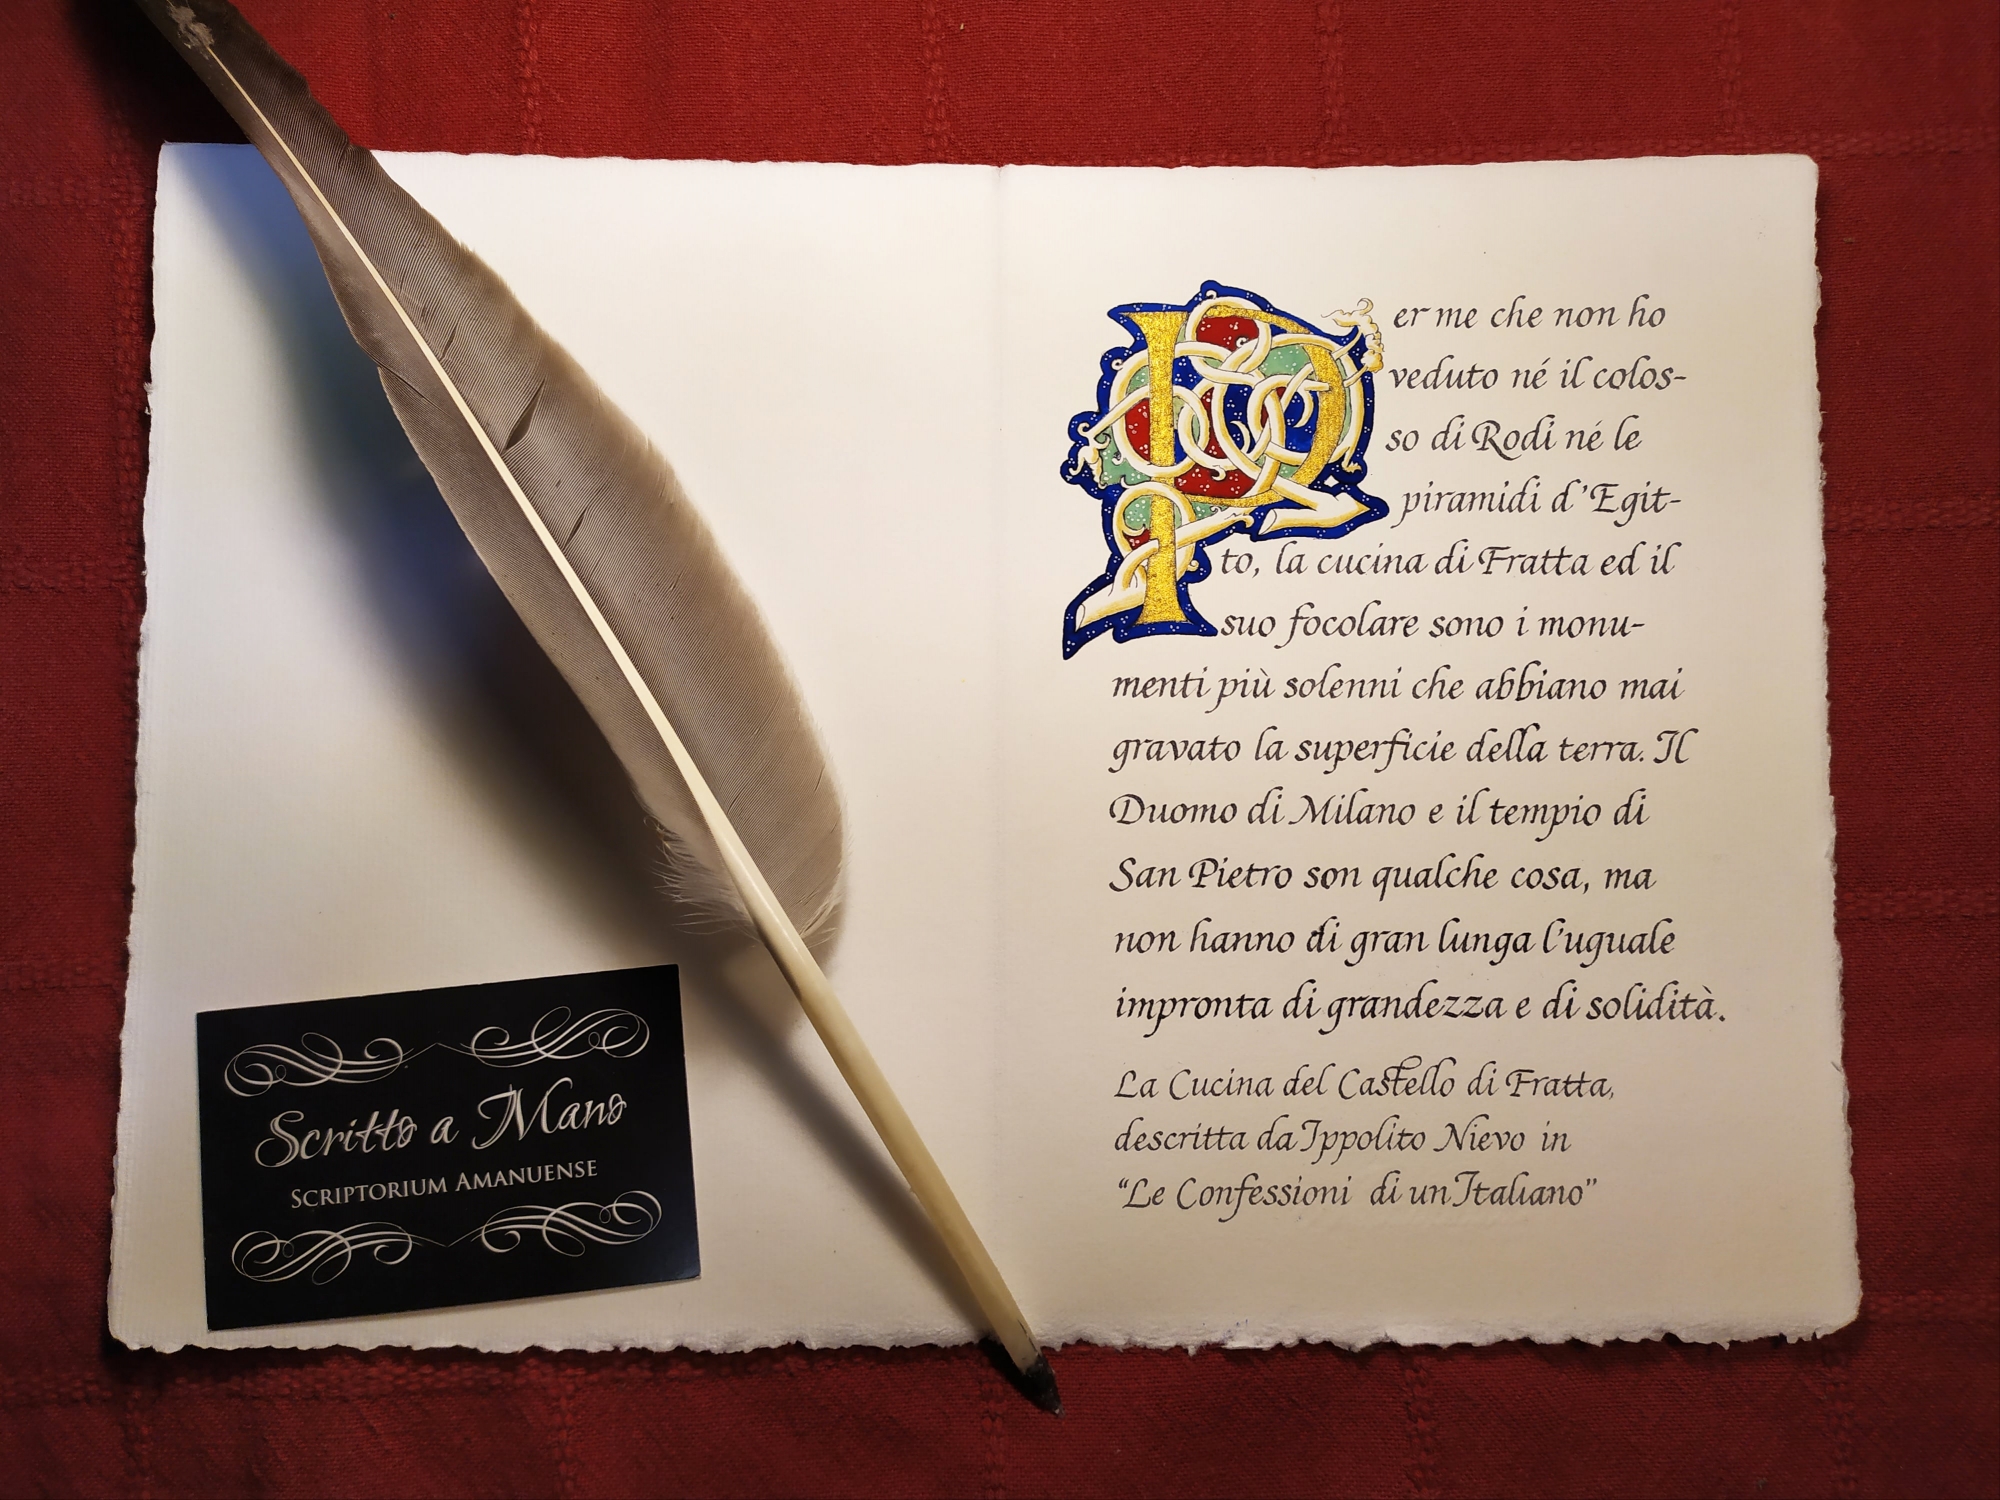 Per me che non ho
veduto né il colos-
so di Rodi né le
piramidi d'Egit-
to, la cucina di Fratta ed il
suo focolare sono i monu-
menti più solenni che abbiano mai
gravato la superficie della terra. Il
Duomo di Milano e il tempio di
San Pietro son qualche cosa, ma
non hanno di gran lunga l'uguale
impronta di grandezza e di solidità.
La Cucina del Castello di Fratta,
descritta da Ippolito Nievo in
"Le Confessioni di un Italiano"
Scritto a Mano
SCRIPTORIUM AMANUENSE